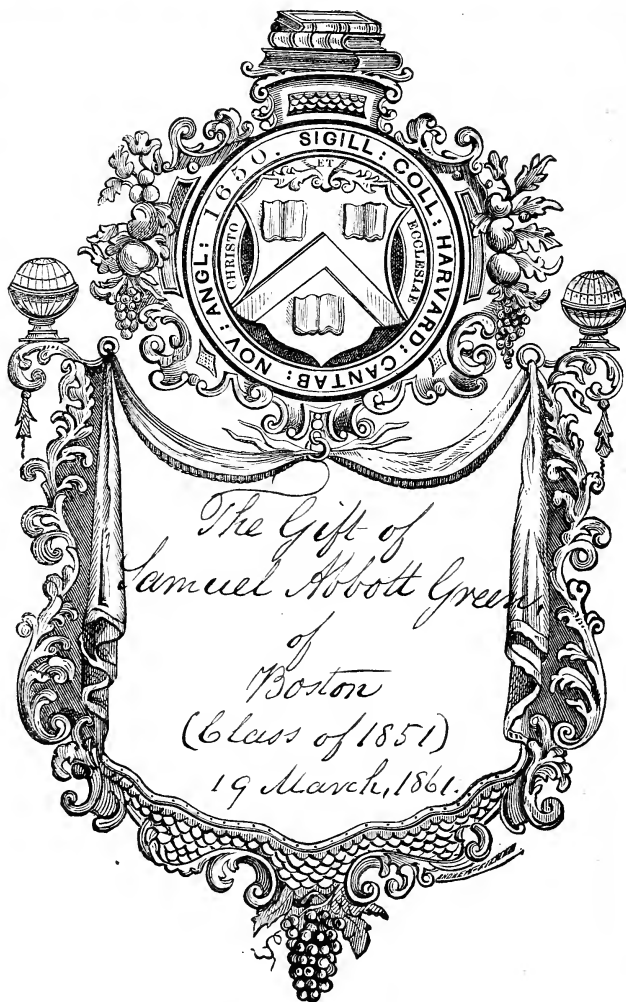 SIGILL: COLL: HARVARD: CANTAB: NOV: ANGL: 1650.
ET
CHRISTO
ECCLESTAE
The Gift of
Samuel Abbott Green,
of
Boston
(Class of 1851)
19 March, 1861.